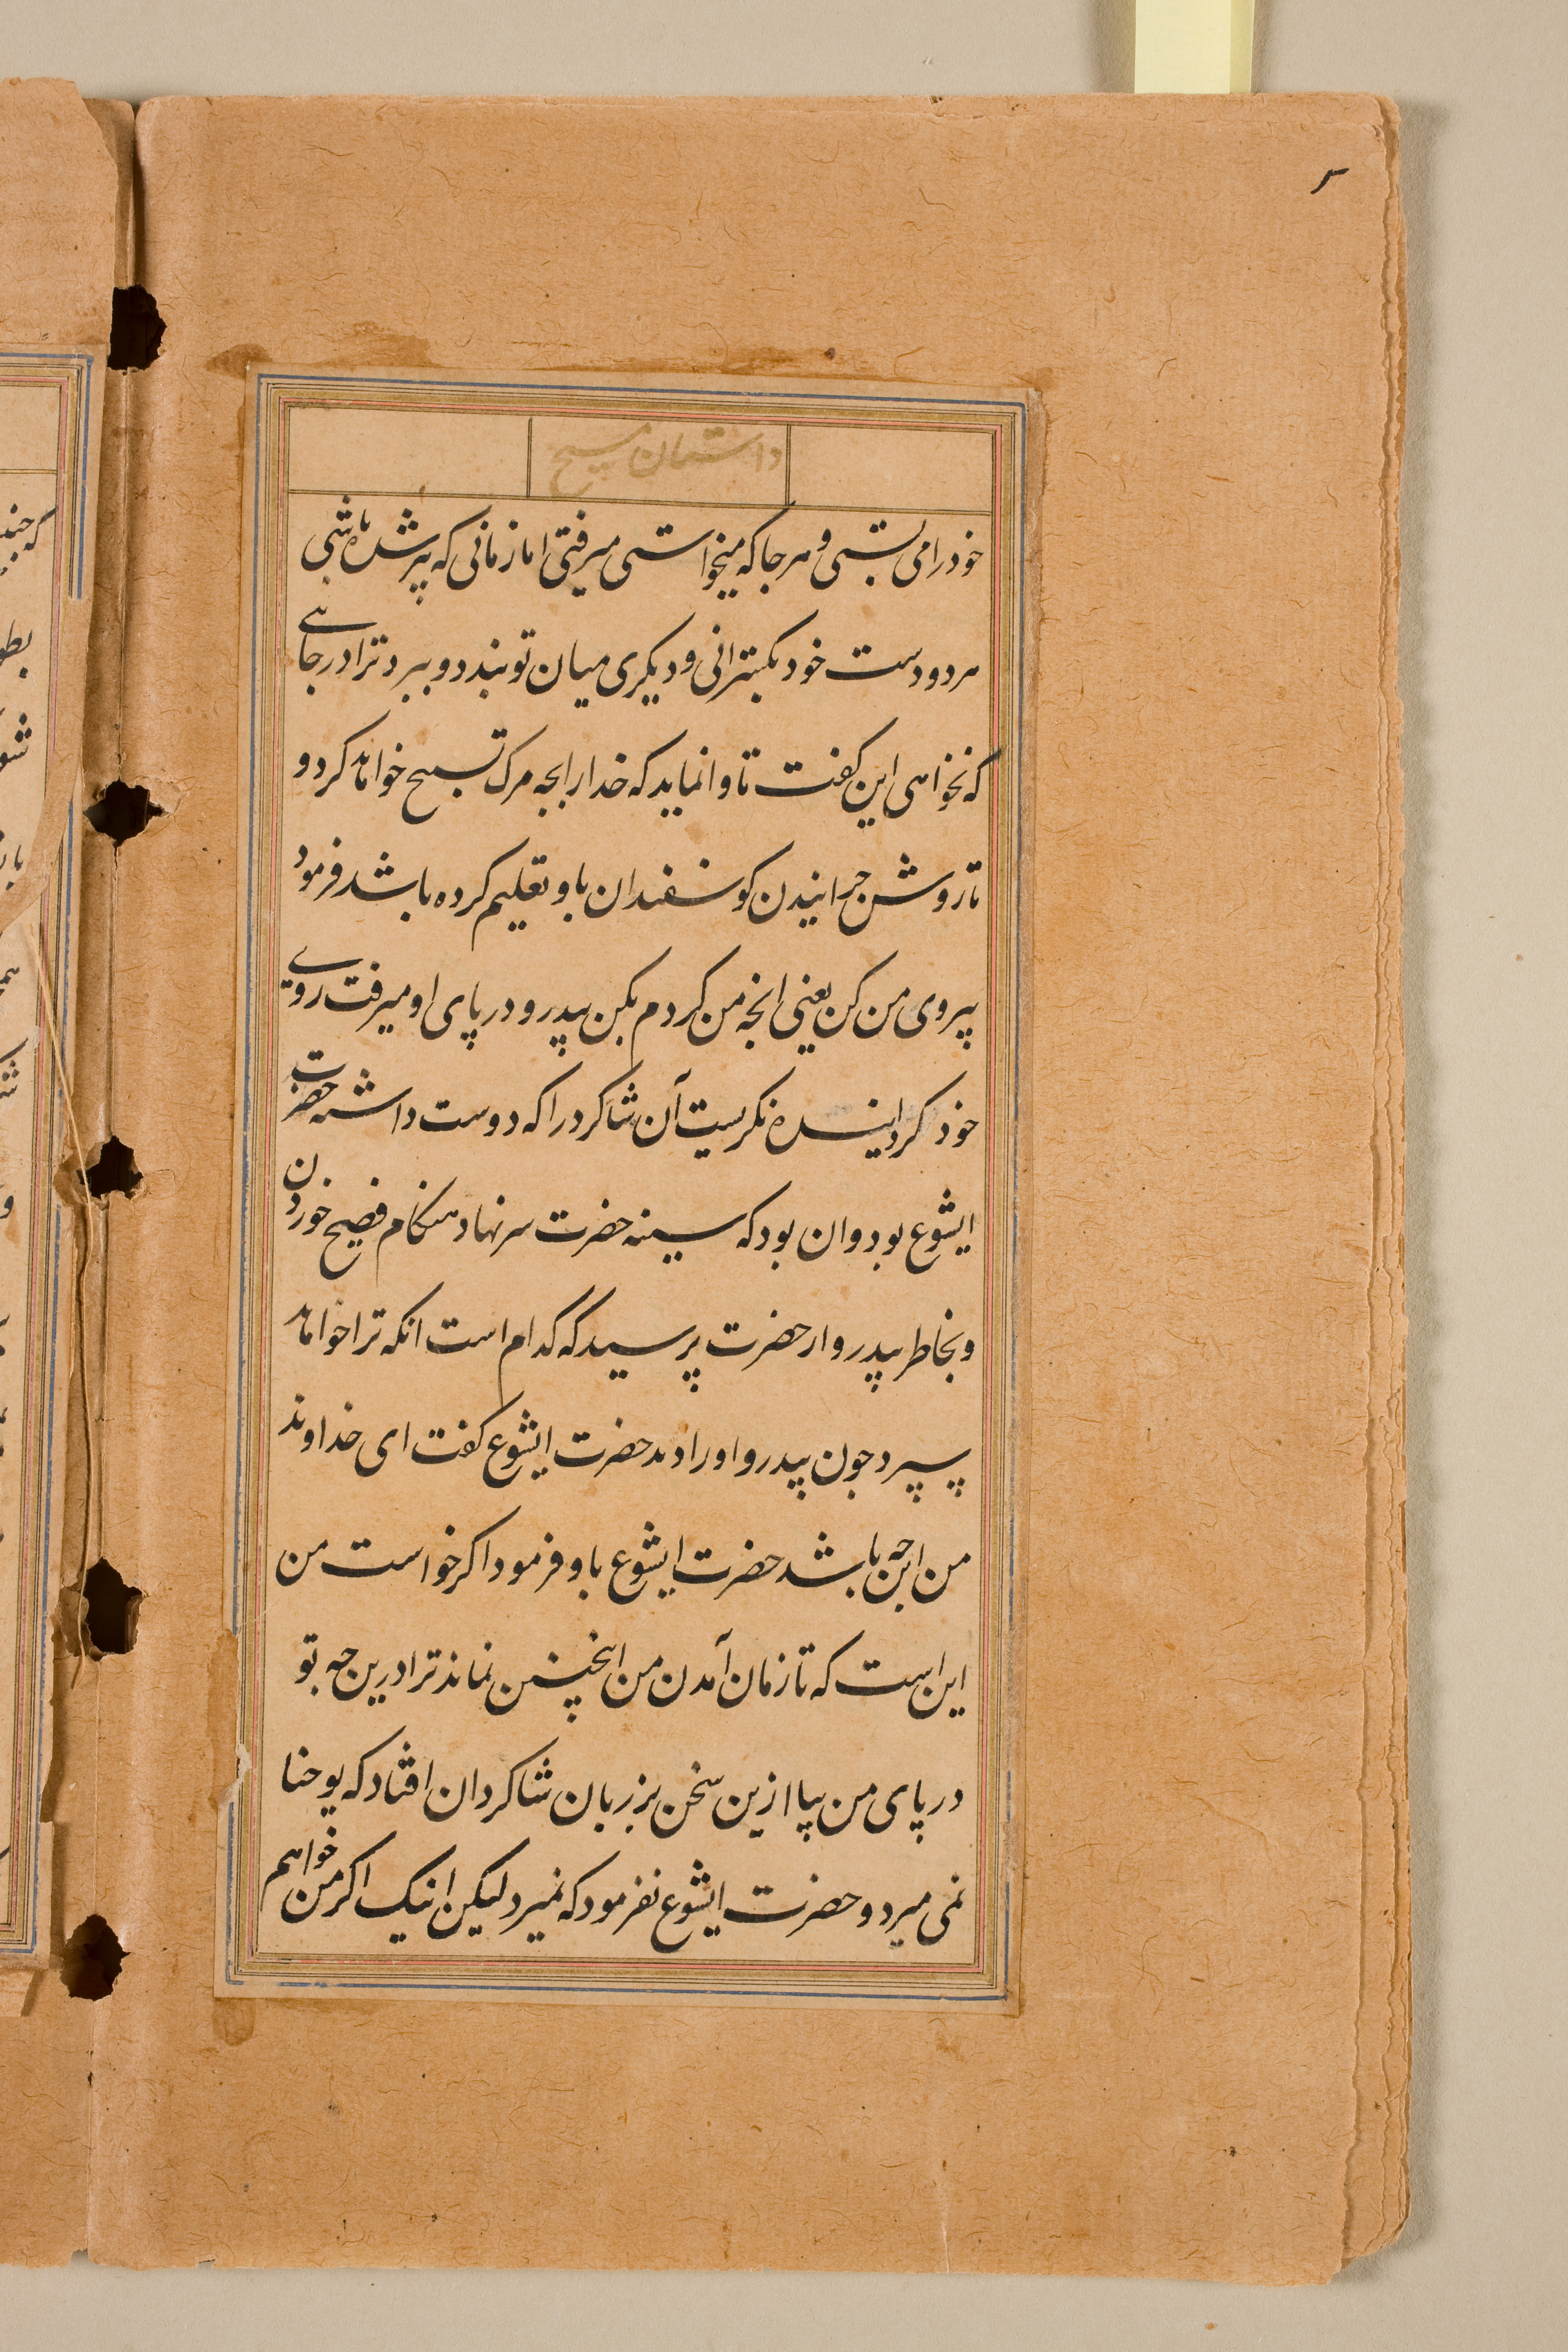 داستان مسیح
خود را می بستی و هر جا که میخواستی میرفتی اما زمانی که پیر شده باشی
هر دو دست خود بکسترانی و دیکری میان تو بندد و ببرد ترا در جاے
که نخواهی این کفت تا وانماید که خدا را بجه مرک تسبیح خواهد کرد و
تا روش جرانیدن کوسفندان باو تعلیم کرده باشد فرمود
پیروی من کن یعنی انجه من کردم بکن پیدرو در پای او میرفت رویے
خود کردانیده نکریست آن شاکرد را که دوست داشته حضرت
ایشوع بود و ان بود که سینه حضرت سر نهاد هنکام فصیح خوردن
و بخاطر پیدرو از حضرت پرسید که کدام است انکه ترا خواهد
سپرد جون پیدرو او را دید حضرت ایشوع کفت ای خداوند
من این جه باشد حضرت ایشوع باو فرمود اکر خواست من
این است که تا زمان آمدن من اینچنین نماند ترا درین جه تو
در پای من بیا ازین سخن بر زبان شاکردان افتاد که یوحنا
نمی میرد و حضرت ایشوع نفرمود که نمیرد لیکن اینک اکر من خواهم